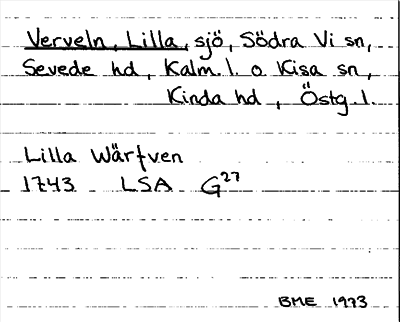 Verveln, Lilla, sjö, Södra Vi sn,
Sevede hd, Kalm. l. o. Kisa sn,
Kinda hd, Östg. l.
Lilla Wärfven
1743 LSA G27
BME 1973